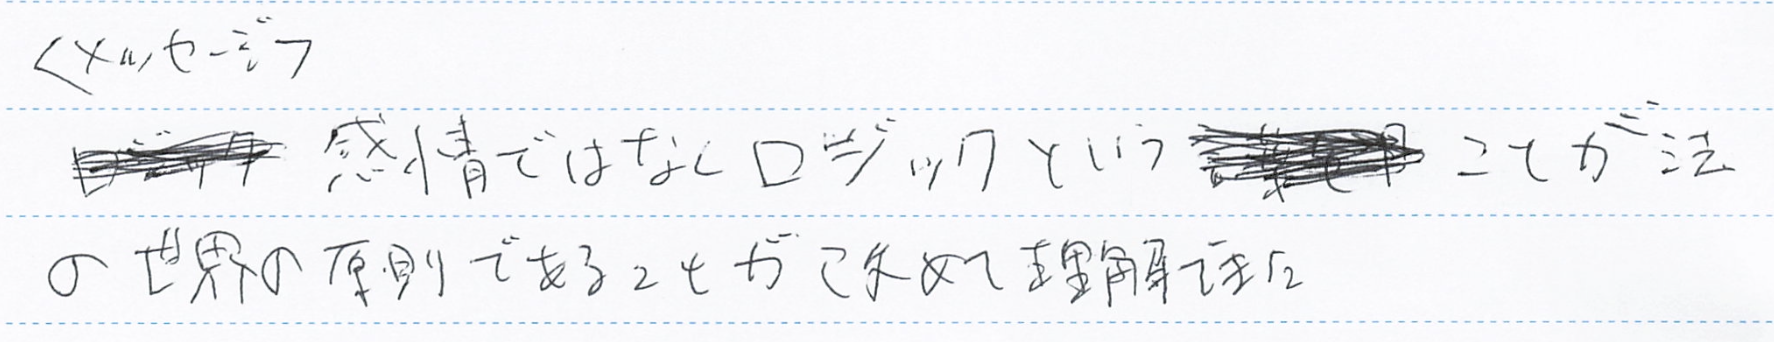 <メッセージ>
感情ではなくロジックということが法
の世界の原則であることが改めて理解できた